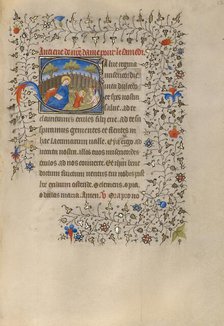 Salue regina
misericordie
vita dulcedo
et spes nostra
salue. ad te
clamamus exules filij eue. ad te
suspiramus gementes et flentes in
hac lacrimarum valle. Eya ergo
aduocata nostra illos tuos misericordes
oculos ad nos conuerte. Et ihm bene
dictum fructum ventris tui nobis
post hoc exilium ostende. o clemens. o pia
o dulcis maria. Amen. Ora pro no